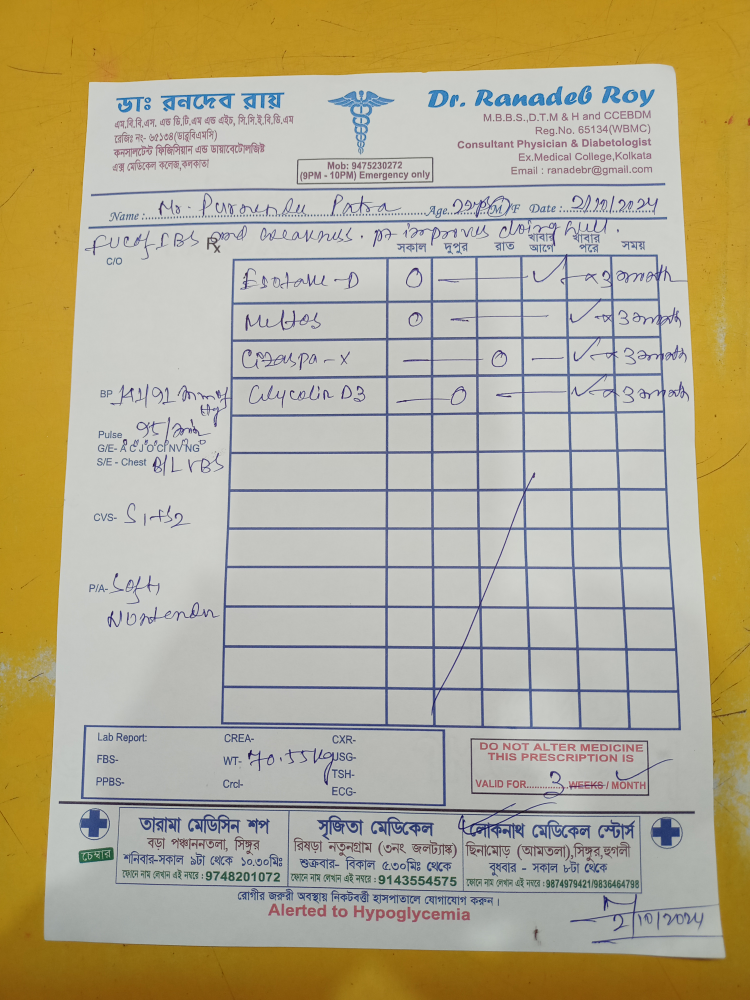 ডাঃ রনদেব রায়
এম.বি.বি.এস. এন্ড ডি.টি.এম এন্ড এইচ, সি.সি.ই.বি.ডি.এম
রেজিঃ নং- ৬৫১৩৪(ডাব্লুবিএমসি)
কনসালটেন্ট ফিজিসিয়ান এন্ড ডায়াবেটোলজিষ্ট
এক্স মেডিকেল কলেজ,কলকাতা
Mob: 9475230272
(9PM - 10PM) Emergency only
Dr. Ranadeb Roy
M.B.B.S.,D.T.M & H and CCEBDM
Reg.No. 65134(WBMC)
Consultant Physician & Diabetologist
Ex.Medical College,Kolkata
Email : ranadebr@gmail.com
Name : Mr. Purnendu Patra Age M/F Date : 2/10/2024
FUC of IBS and weakness. pt improves doing well.
C/O
Rx
সকাল দুপুর রাত খাবার আগে খাবার পরে সময়
Esotake-D O — — ✓ — x 3 month
Meltos O — ✓ — x 3 month
Cizaspa-X — O — ✓ — x 3 month
Glycolin D3 — O — ✓ — x 3 month
BP 141/91 mm of Hg
Pulse 95/min
G/E- A C J O C N V N G
S/E - Chest B/L VBS
CVS- S1+S2
P/A- Soft,
Nontender
Lab Report: CREA- CXR-
FBS- WT- 70.55kg USG-
TSH-
PPBS- Crcl- ECG-
DO NOT ALTER MEDICINE
THIS PRESCRIPTION IS
VALID FOR 3 WEEKS / MONTH
চেম্বার
তারামা মেডিসিন শপ
বড়া পঞ্চাননতলা, সিঙ্গুর
শনিবার-সকাল ৯টা থেকে ১০.৩০মিঃ
ফোনে নাম লেখান এই নম্বরে : 9748201072
সৃজিতা মেডিকেল
রিষড়া নতুনগ্রাম (৩নং জলট্যাঙ্ক)
শুক্রবার- বিকাল ৫.৩০মিঃ থেকে
ফোনে নাম লেখান এই নম্বরে : 9143554575
লোকনাথ মেডিকেল স্টোর্স
ছিনামোড় (আমতলা),সিঙ্গুর,হুগলী
বুধবার - সকাল ৮টা থেকে
ফোনে নাম লেখান এই নম্বরে : 9874979421/9836464798
রোগীর জরুরী অবস্থায় নিকটবর্তী হাসপাতালে যোগাযোগ করুন।
Alerted to Hypoglycemia
2/10/2024